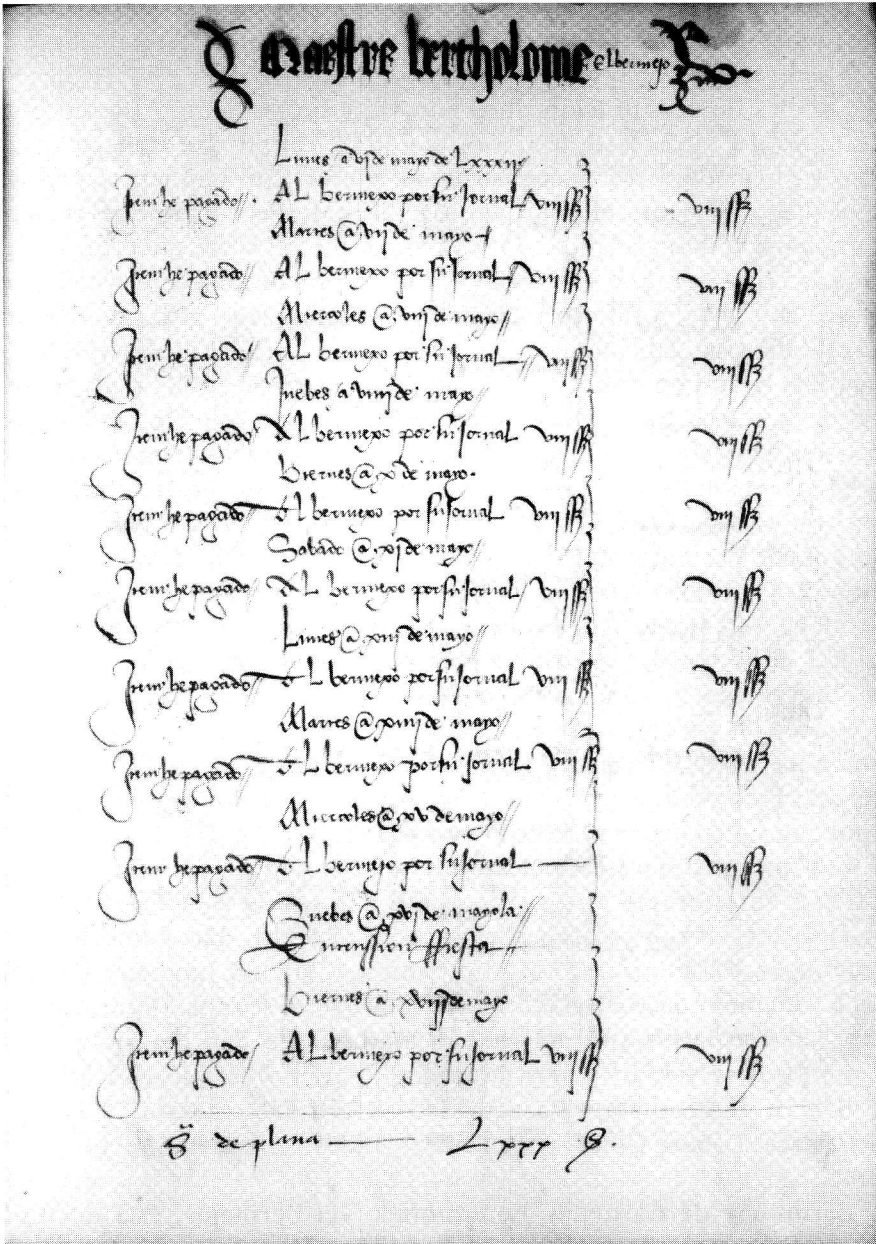 Maestre bertholome el bermejo
Lunes a vj de mayo de Lxxxij
Item he pagado Al bermexo por su Jornal viij ss viij ss
Martes a vij de mayo
Item he pagado Al bermexo por su Jornal viij ss viij ss
Miercoles a viij de mayo
Item he pagado Al bermexo por su Jornal viij ss viij ss
Juebes a viiij de mayo
Item he pagado Al bermexo por su Jornal viij ss viij ss
biernes a x de mayo
Item he pagado Al bermexo por su Jornal viij ss viij ss
Sabado a xj de mayo
Item he pagado Al bermexo por su Jornal viij ss viij ss
Lunes a xiij de mayo
Item he pagado Al bermexo por su Jornal viij ss viij ss
Martes a xiiij de mayo
Item he pagado Al bermexo por su Jornal viij ss viij ss
Miercoles a xv de mayo
Item he pagado Al bermejo por su Jornal viij ss
Juebes a xvj de mayo la
fiesta
biernes a de mayo
Item he pagado Al bermexo por su Jornal viij ss viij ss
de plana Lxxx s.